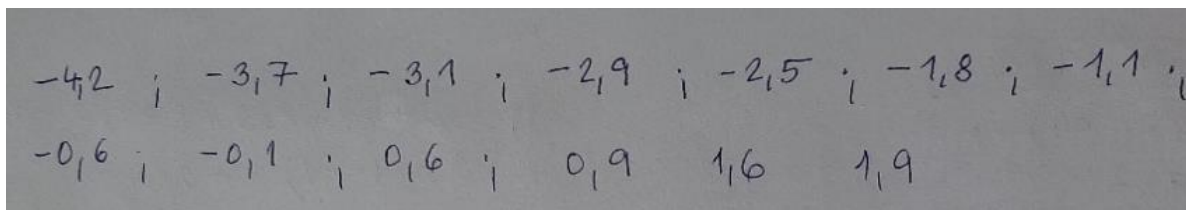 -4,2 ; -3,7 ; -3,1 ; -2,9 ; -2,5 ; -1,8 ; -1,1 ;
-0,6 ; -0,1 ; 0,6 ; 0,9 1,6 1,9